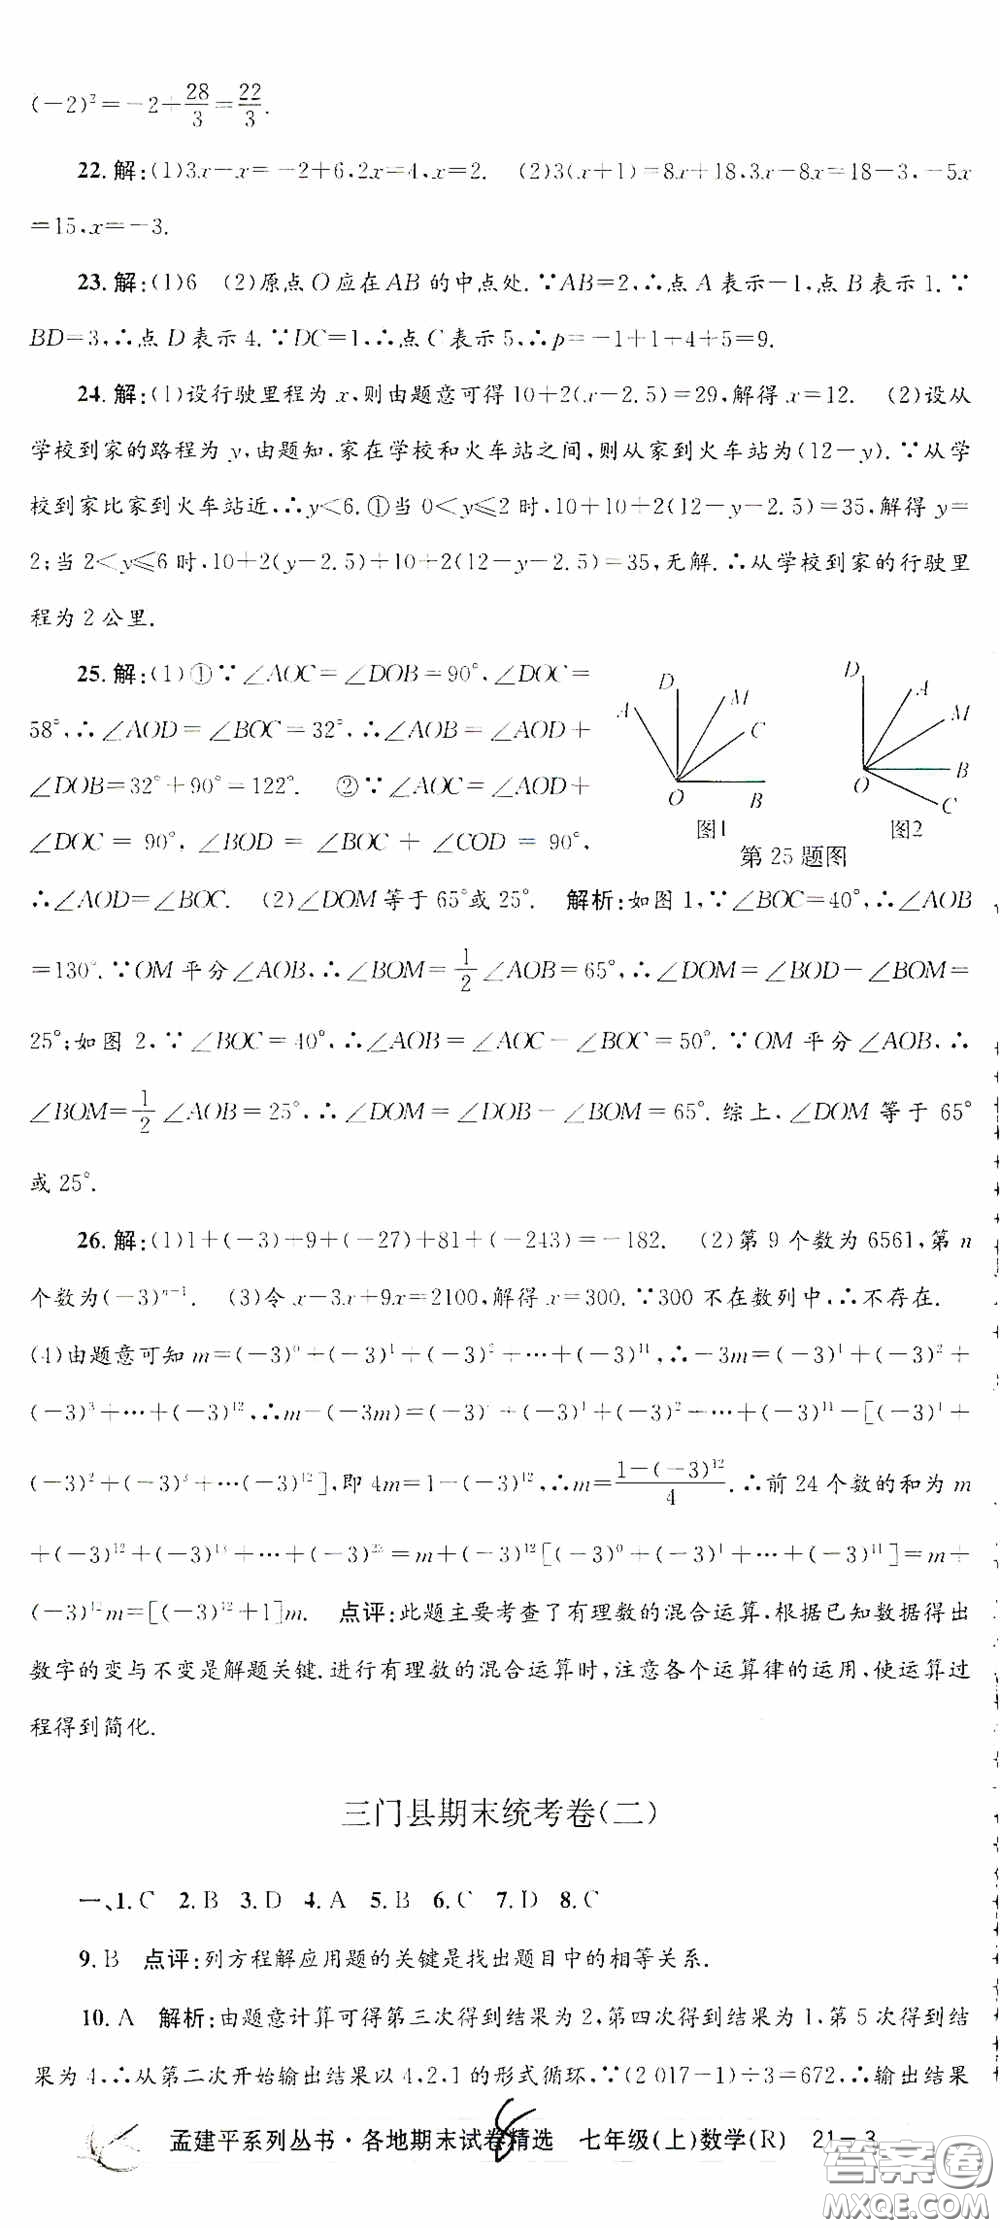 (−2)²=−2+28/3=22/3.
22.解:(1)3x−x=−2+6,2x=4,x=2. (2)3(x+1)=8x+18,3x−8x=18−3,−5x
=15,x=−3.
23.解:(1)6 (2)原点O应在AB的中点处.∵AB=2,∴点A表示−1,点B表示1.∵
BD=3,∴点D表示4.∵DC=1,∴点C表示5,∴p=−1+1+4+5=9.
24.解:(1)设行驶里程为x,则由题意可得10+2(x−2.5)=29,解得x=12. (2)设从
学校到家的路程为y,由题知,家在学校和火车站之间,则从家到火车站为(12−y).∵从学
校到家比家到火车站近,∴y<6.①当0<y≤2时,10+10+2(12−y−2.5)=35,解得y=
2;当2<y≤6时,10+2(y−2.5)+10+2(12−y−2.5)=35,无解.∴从学校到家的行驶里
程为2公里.
25.解:(1)①∵∠AOC=∠DOB=90°,∠DOC=
58°,∴∠AOD=∠BOC=32°,∴∠AOB=∠AOD+
∠DOB=32°+90°=122°. ②∵∠AOC=∠AOD+
∠DOC=90°,∠BOD=∠BOC+∠COD=90°,
D A M C O B
图1
D A M B O C
图2
第25题图
∴∠AOD=∠BOC. (2)∠DOM等于65°或25°. 解析:如图1,∵∠BOC=40°,∴∠AOB
=130°.∵OM平分∠AOB,∴∠BOM=1/2∠AOB=65°,∴∠DOM=∠BOD−∠BOM=
25°;如图2,∵∠BOC=40°,∴∠AOB=∠AOC−∠BOC=50°.∵OM平分∠AOB,∴
∠BOM=1/2∠AOB=25°,∴∠DOM=∠DOB−∠BOM=65°.综上,∠DOM等于65°
或25°.
26.解:(1)1+(−3)+9+(−27)+81+(−243)=−182. (2)第9个数为6561,第n
个数为(−3)ⁿ⁻¹. (3)令x−3x+9x=2100,解得x=300.∵300不在数列中,∴不存在.
(4)由题意可知m=(−3)⁰+(−3)¹+(−3)²+⋯+(−3)¹¹,∴−3m=(−3)¹+(−3)²+
(−3)³+⋯+(−3)¹²,∴m−(−3m)=(−3)⁰+(−3)¹+(−3)²+⋯+(−3)¹¹−[(−3)¹+
(−3)²+(−3)³+⋯(−3)¹²],即4m=1−(−3)¹²,∴m=(1−(−3)¹²)/4.∴前24个数的和为m
+(−3)¹²+(−3)¹³+⋯+(−3)²³=m+(−3)¹²[(−3)⁰+(−3)¹+⋯+(−3)¹¹]=m+
(−3)¹²m=[(−3)¹²+1]m. 点评:此题主要考查了有理数的混合运算,根据已知数据得出
数字的变与不变是解题关键.进行有理数的混合运算时,注意各个运算律的运用,使运算过
程得到简化.
三门县期末统考卷(二)
一、1.C 2.B 3.D 4.A 5.B 6.C 7.D 8.C
9.B 点评:列方程解应用题的关键是找出题目中的相等关系.
10.A 解析:由题意计算可得第三次得到结果为2,第四次得到结果为1,第5次得到结
果为4,∴从第二次开始输出结果以4,2,1的形式循环,∵(2 017−1)÷3=672,∴输出结果
孟建平系列丛书·各地期末试卷精选 七年级(上)数学(R) 21−3
8
答案圈
MXQE.COM